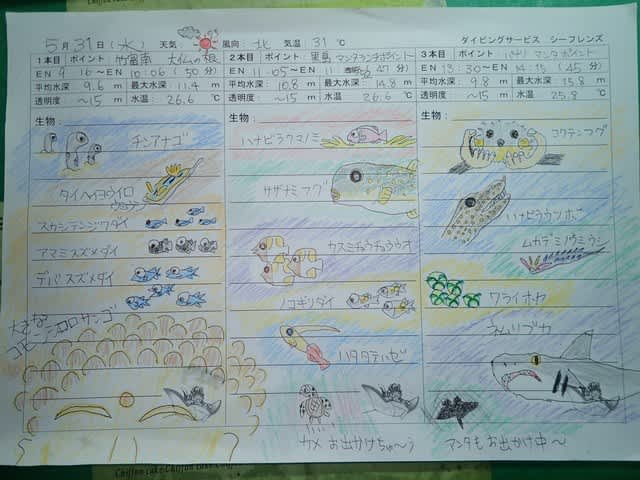 5月31日(水) 天気: 風向: 北 気温 31℃ ダイビングサービス シーフレンズ
1本目 ポイント 竹富南 大仏の根
EN 9:16～10:06 (50分)
平均水深 9.6 m 最大水深 11.4 m
透明度 ～15 m 水温: 26.6 ℃
生物:
チンアナゴ
タイヘイヨウイロウミウシ
スカシテンジクダイ
アマミスズメダイ
デバスズメダイ
大きな
コモンシコロサンゴ
2本目 ポイント 黒島 マンタランチポイント
EN 11:05～11: (47分)
平均水深 10.8 m 最大水深 14.8 m
透明度 ～15 m 水温: 26.6 ℃
生物:
ハナビラクマノミ
サザナミフグ
カスミチョウチョウウオ
ノコギリダイ
ハタタテハゼ
カメ お出かけちゅ～う
3本目 ポイント マンタポイント
EN 13:30～14:15 (45分)
平均水深 9.8 m 最大水深 15.8 m
透明度 ～15 m 水温: 25.8 ℃
生物:
コクテンフグ
ハナビラウツボ
ムカデミノウミウシ
ワライボヤ
ネムリブカ
マンタもお出かけ中～
Chiffon cake·Chiffon cake